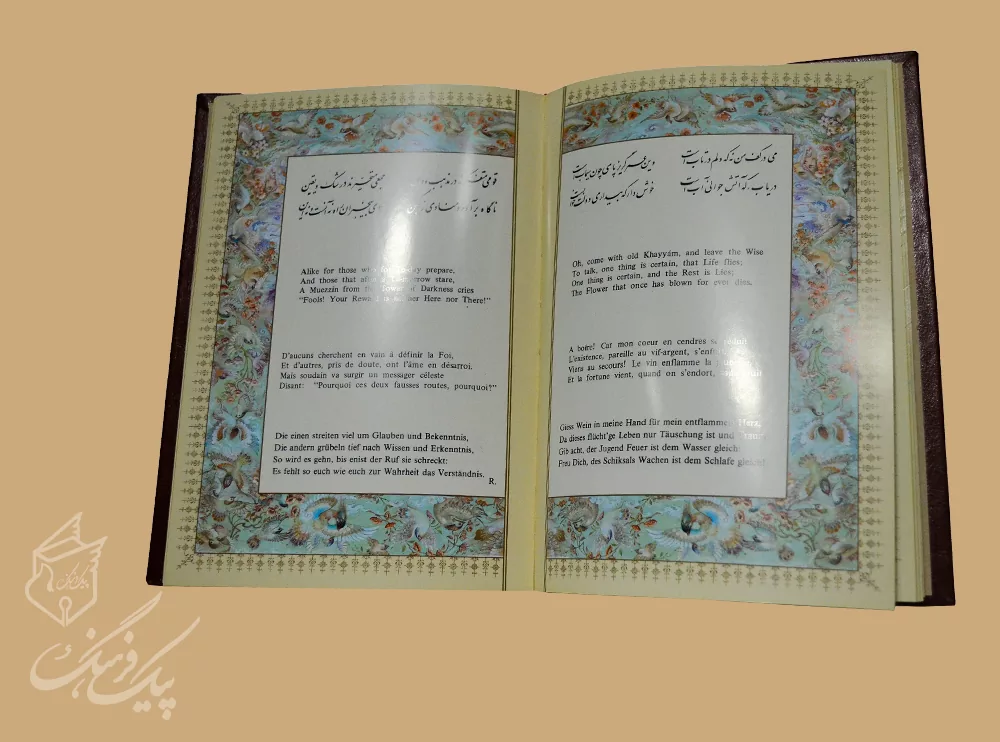 قومی در مذهب جمعی متحیرند در شک و یقین
ناگاه منادی بیخبران راه نه آنست و نه این
Alike for those who prepare,
And those that stare,
A Muezzin from the Tower of Darkness cries
"Fools! Your Here nor There!"
D'aucuns cherchent en vain à définir la Foi,
Et d'autres, pris de doute, ont l'âme en désarroi.
Mais soudain va surgir un messager céleste
Disant: "Pourquoi ces deux fausses routes, pourquoi?"
Die einen streiten viel um Glauben und Bekenntnis,
Die andern grübeln tief nach Wissen und Erkenntnis,
So wird es gehn, bis enist der Ruf sie schreckt:
Es fehlt so euch wie euch zur Wahrheit das Verständnis.
R.
می در کف من نه که دلم در تاب است وین عمر گریز پای چون سیماب است
دریاب که آتش جوانی آب است خوش دار که بیداری دولت خواب است
Oh, come with old Khayyám, and leave the Wise
To talk, one thing is certain, that Life flies;
One thing is certain, and the Rest is Lies;
The Flower that once has blown for ever dies.
A boire! Cat mon coeur en cendres se réduit
L'existence, pareille au vif-argent,
Viens au secours! Le vin enflamme la
Et la fortune vient, quand on s'endort,
Giess Wein in meine Hand für mein entflammtes Herz,
Da dieses flücht'ge Leben nur Täuschung ist und
Gib acht, der Jugend Feuer ist dem Wasser gleich:
Freu Dich, des Schiksals Wachen ist dem Schlafe gleich!
پیک فرهنگ